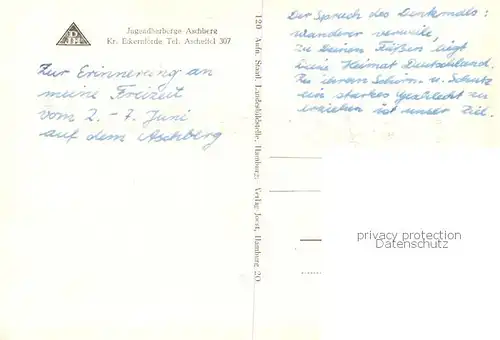 Jugendherberge Aschberg
Kr. Eckernförde Tel. Ascheffel 307
Zur Erinnerung an
meine Freizeit
vom 2. - 7. Juni
auf dem Aschberg
120 Aufn. Staatl. Landesbildstelle, Hamburg: Verlag Joost, Hamburg 20
Der Spruch des Denkmals:
Wanderer verweile,
zu Deinen Füßen liegt
Deine Heimat Deutschland.
Zu ihrem Schirm u. Schutz
ein starkes Geschlecht zu
erziehen ist unser Ziel.
privacy protection
Datenschutz